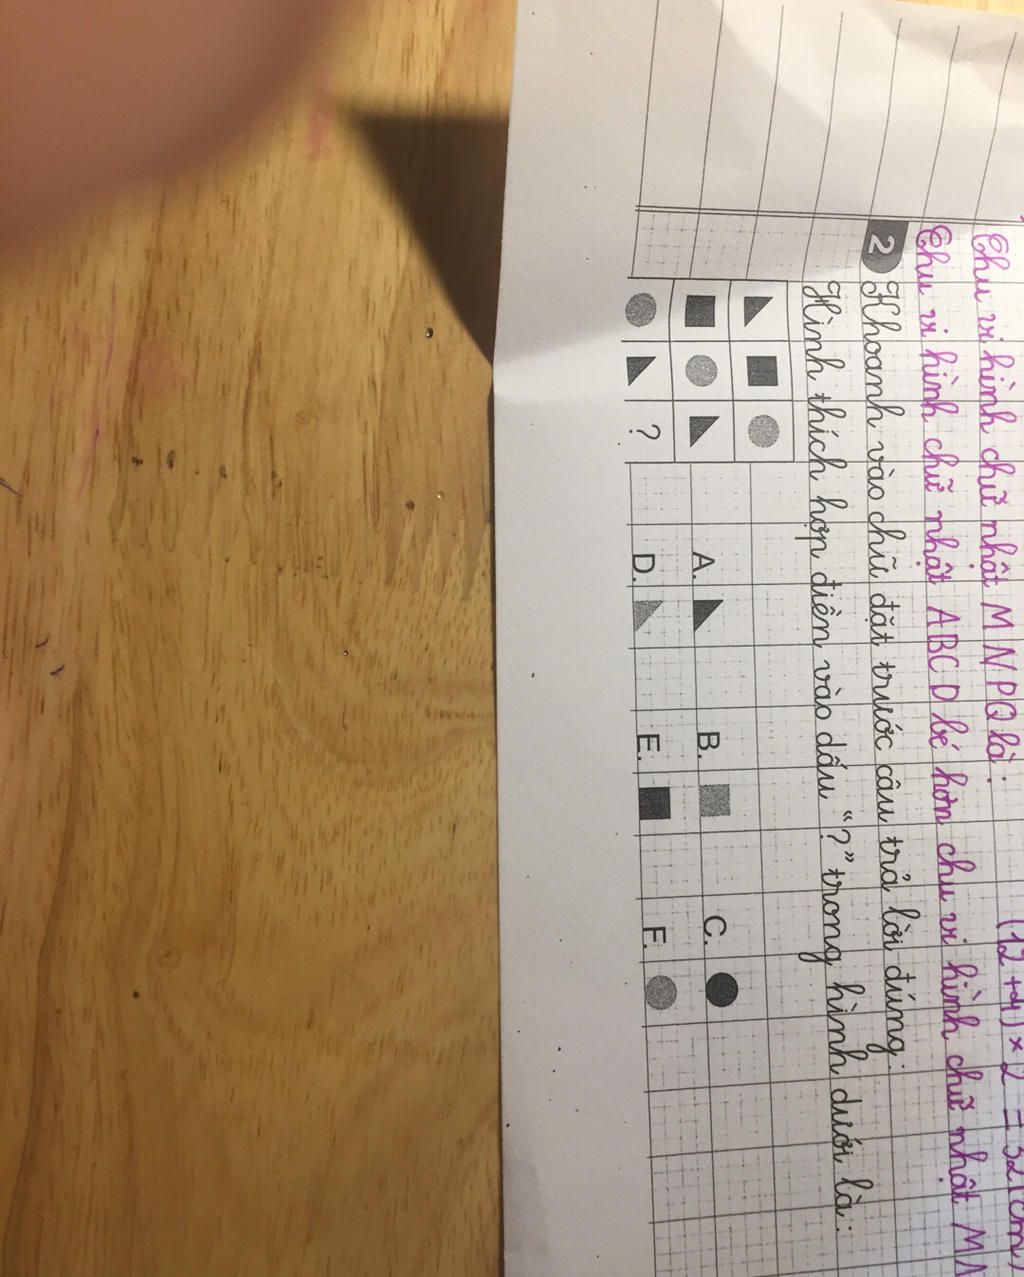 (12 + 4) × 2 = 32 (cm)
Chu vi hình chữ nhật MNPQ là:
Chu vi hình chữ nhật ABCD bé hơn chu vi hình chữ nhật MN
2 Khoanh vào chữ đặt trước câu trả lời đúng:
Hình thích hợp điền vào dấu “?” trong hình dưới là:
?
A. B. C.
D. E. F.